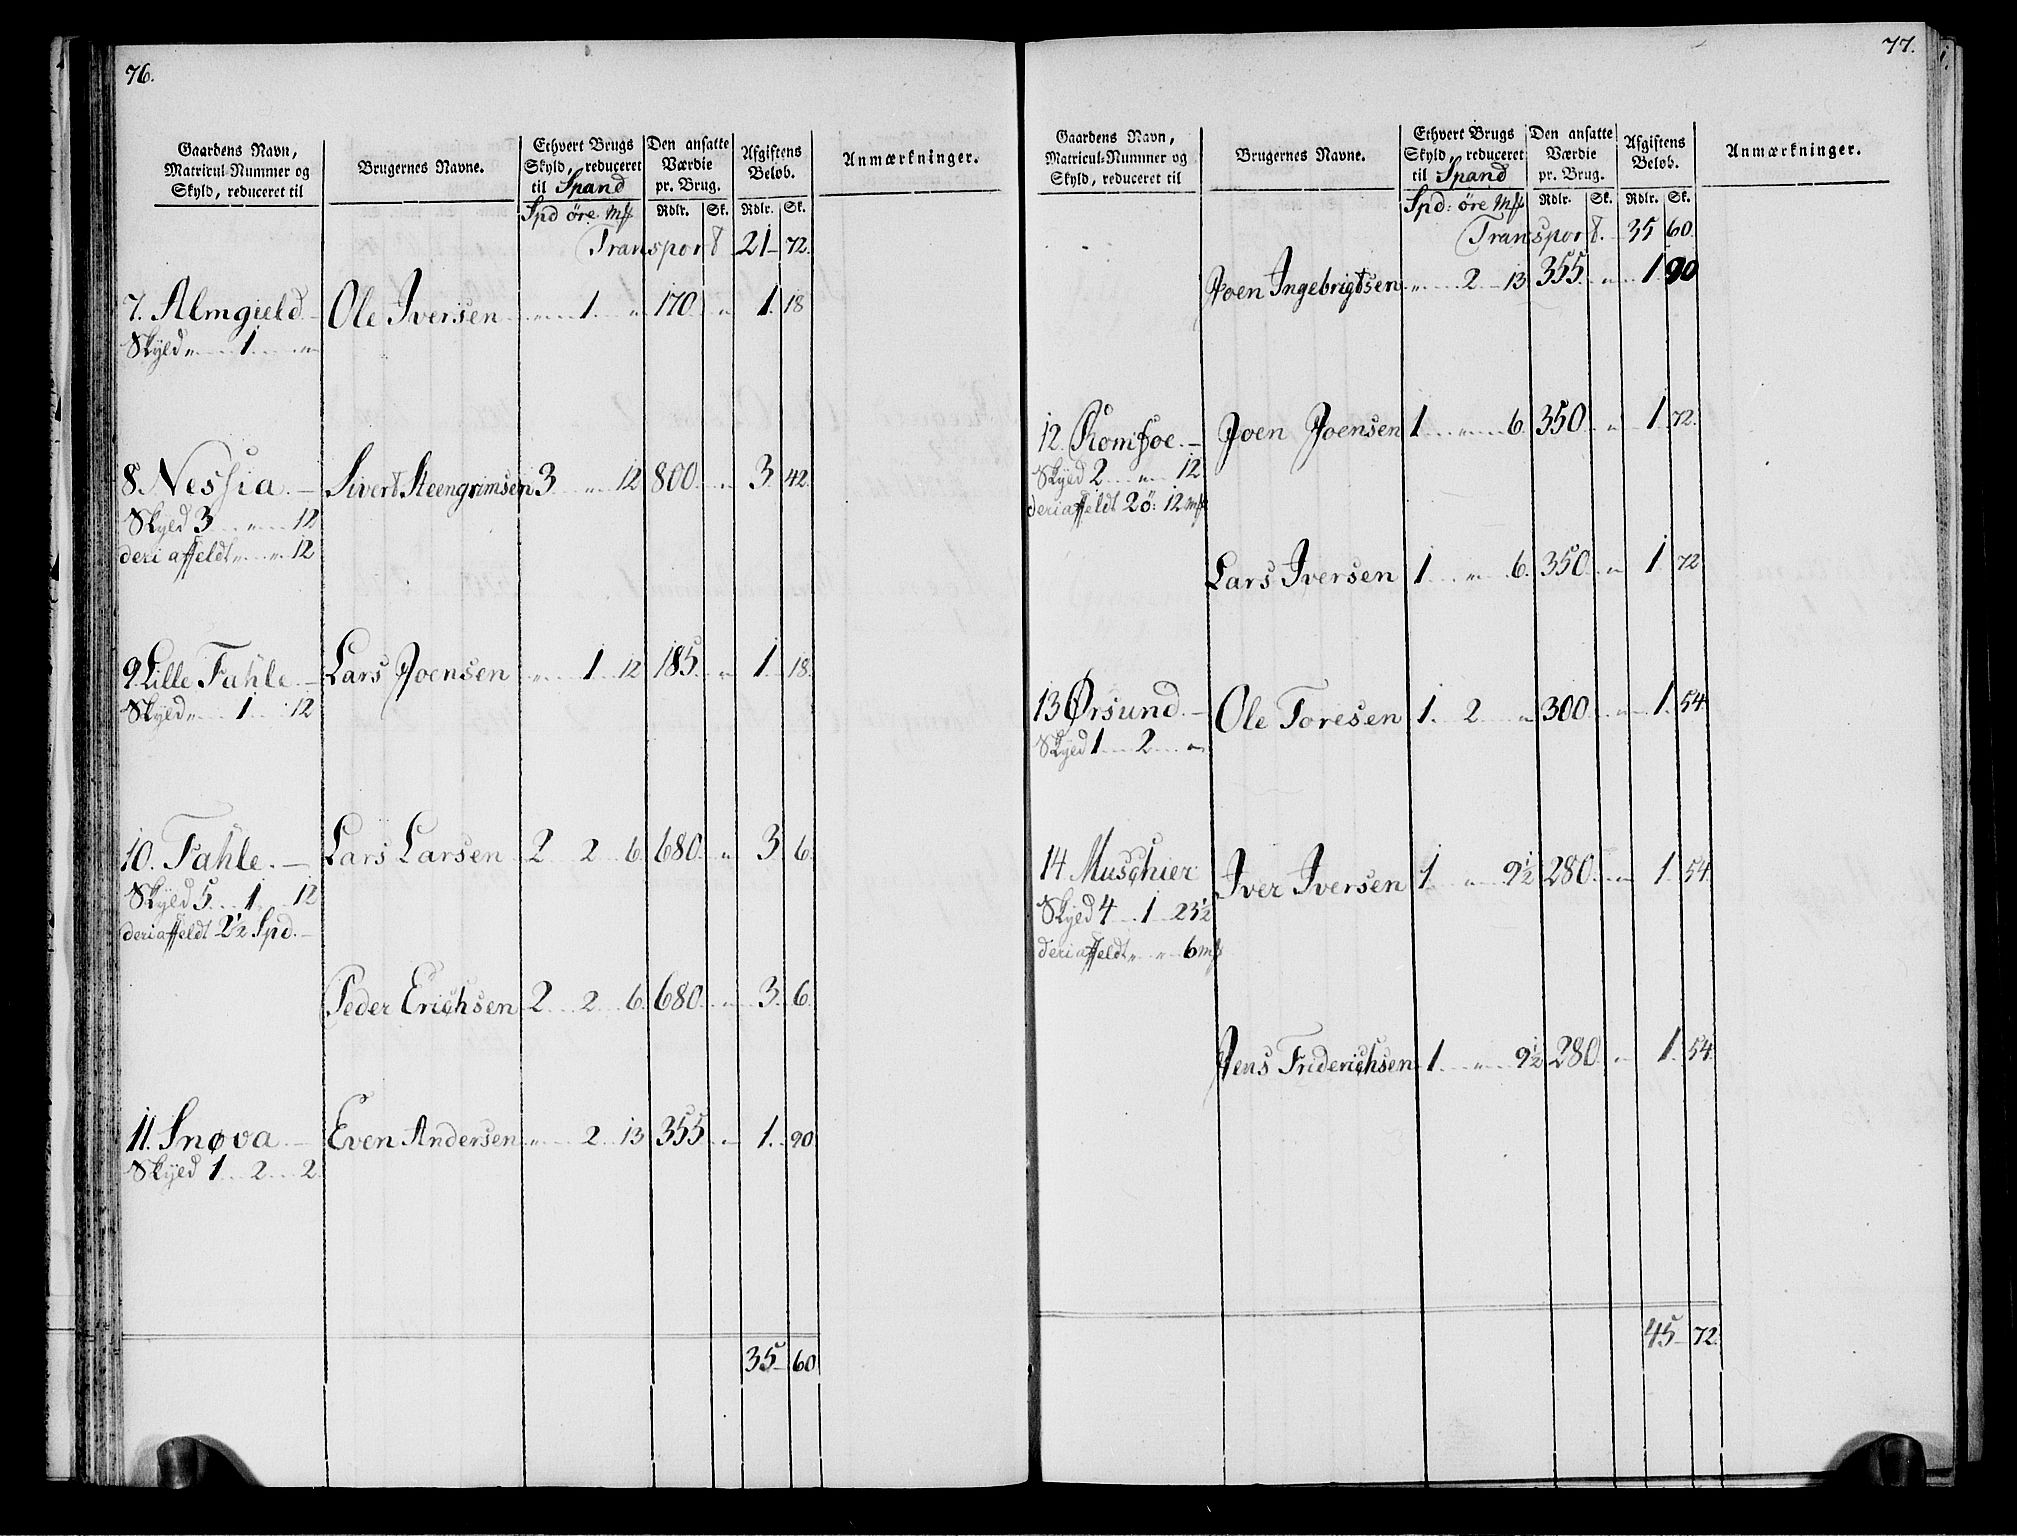 76.
Gaardens Navn, Matricul-Nummer og Skyld, reduceret til
Brugernes Navne.
Ethvert Brugs Skyld, reduceret til Spand
Den ansatte Værdie pr. Brug.
Afgiftens Beløb.
Anmærkninger.
Spd øre Mk Rdlr. Sk. Rdlr. Sk.
Transport 21 72.
7. Almgield Ole Iversen " 1. " 170. " 1. 18
Skyld " 1. "
8. Nessia. Sivert Steengrimsen 3 " 12 800. " 3. 42.
Skyld 3 " 12
deri affeldt " " 12
9. Lille Fahle. Lars Joensen " 1 12 185. " 1. 18.
Skyld " 1 12
10. Fahle. Lars Larsen 2 2 6. 680. " 3. 6.
Skyld 5. 1. 12
deri affeldt 2½ Spd.
Peder Erichsen 2 2 6. 680. " 3. 6.
11. Snøva. Even Andersen " 2 13 355 " 1. 90.
Skyld 1. 2. 2.
35 60
77.
Gaardens Navn, Matricul-Nummer og Skyld, reduceret til
Brugernes Navne.
Ethvert Brugs Skyld, reduceret til Spand
Den ansatte Værdie pr. Brug.
Afgiftens Beløb.
Anmærkninger.
Spd: øre Mk Rdlr. Sk. Rdlr. Sk.
Transport. 35 60.
Joen Ingebrigtsen " 2 13 355. " 1. 90
12. Romsoe. Joen Joensen 1 " 6. 350. " 1 72.
Skyld 2 " 12
deri affeldt 2ö: 12 mk
Lars Iversen 1 " 6. 350. " 1 72
13 Ørsund. Ole Toresen 1. 2 " 300. " 1. 54
Skyld 1 2 "
14 Muschier Iver Iversen 1 " 9½ 280. " 1. 54.
Skyld 4 1 23½
deri affeldt " " 6 mk
Jens Friderichsen 1 " 9½ 280. " 1. 54.
45 72.